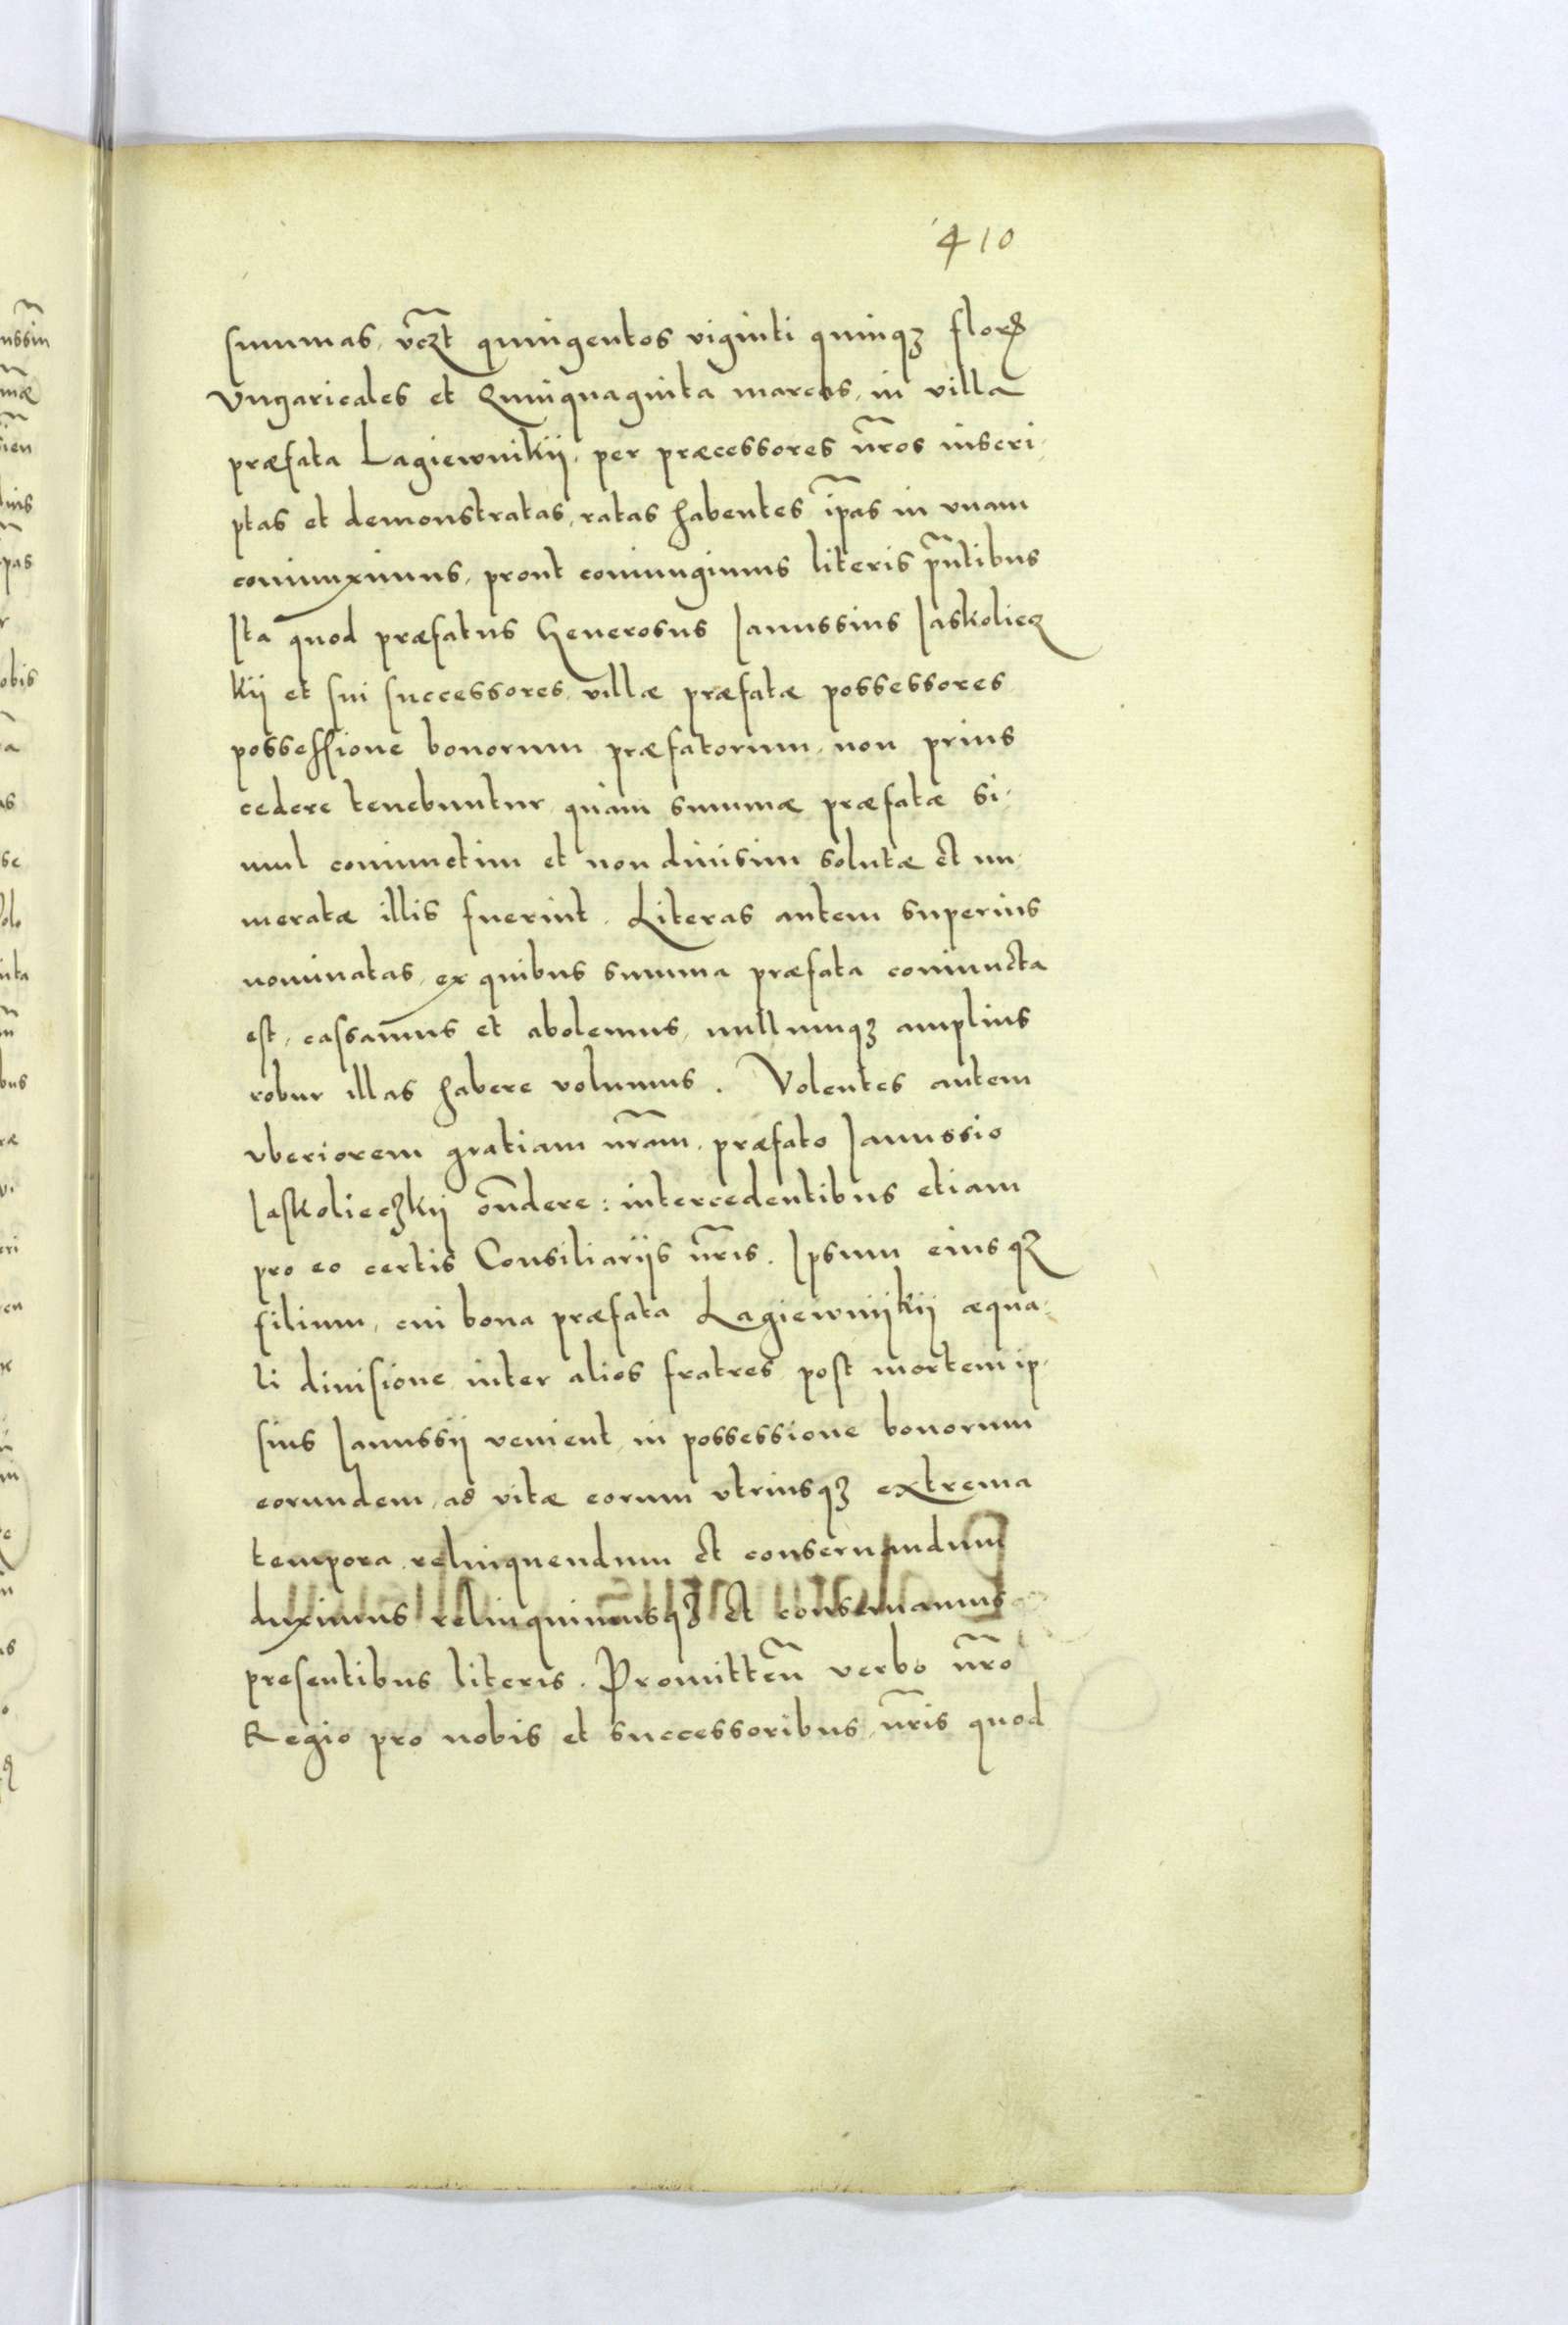 410
summas, vcz̃t quingentos viginti quinqꝫ floꝝ
Vngaricales et Quinquaginta marcas, in villa
præfata Lagiewnikÿ, per præcessores nr̃os inscri-
ptas et demonstratas, ratas habentes ip̃as in vnam
coniunximus, prout coniungimus literis pñtibus
Ita quod præfatus Generosus Ianussius Iaskoliecz
kÿ et sui successores, villæ præfatæ possessores
possessione bonorum præfatorum, non prius
cedere tenebuntur, quàm summæ præfatæ si-
mul coniunctim et non diuisim solutæ et nu-
meratæ illis fuerint. Literas autem superius
nominatas, ex quibus summa præfata coniuncta
est, cassamus et abolemus, nullumqꝫ amplius
robur illas habere volumus. Volentes autem
vberiorem gratiam nr̃am, præfato Ianussio
Iaskolieczkÿ oñdere: intercedentibus etiam
pro eo certis Consiliarÿs nr̃is. Ipsum eiusqꝫ
filium, cui bona præfata Lagiewnÿkÿ æqua-
li diuisione inter alios fratres post mortem ip-
sius Ianussÿ venient, in possessione bonorum
eorundem, ad vitæ eorum vtriusqꝫ extrema
tempora relinquendum et conseruandum
duximus relinquimusqꝫ et conseruamus
presentibus literis. Promitteñ verbo nr̃o
Regio pro nobis et successoribus nr̃is quod